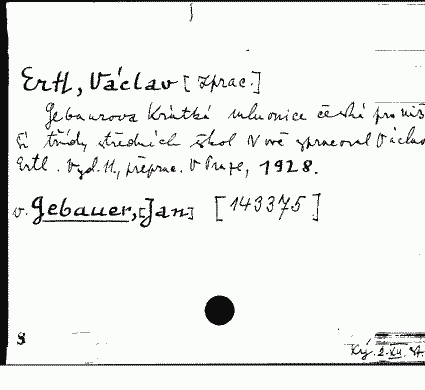 Ertl, Václav [zprac.]
Gebaurova Krátká mluvnice česká pro niž
ší třídy středních škol Nově zpracoval Václav
Ertl. Vyd. 11, přeprac. V Praze, 1928.
v. Gebauer, [Jan] [143375]
8
Ký. 2. XII.